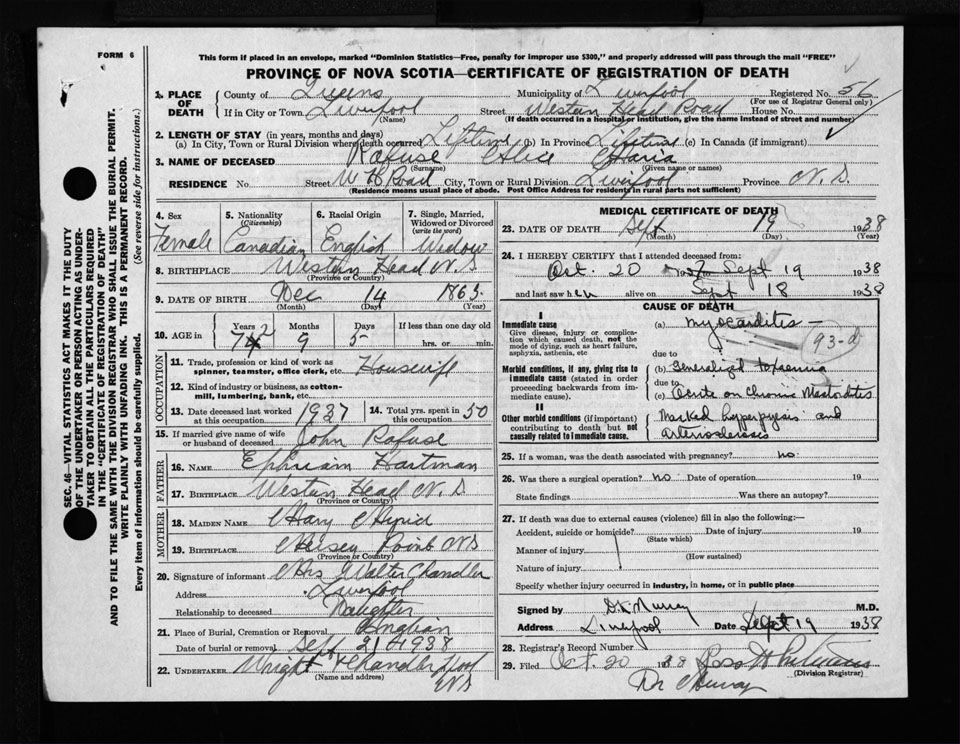 FORM 6
This form if placed in an envelope, marked "Dominion Statistics—Free, penalty for improper use $300," and properly addressed will pass through the mail "FREE"
PROVINCE OF NOVA SCOTIA—CERTIFICATE OF REGISTRATION OF DEATH
1. PLACE OF DEATH County of Queens Municipality of Liverpool Registered No. 56
(For use of Registrar General only)
If in City or Town Liverpool Street Western Head Road House No.
(Name) (If death occurred in a hospital or institution, give the name instead of street and number)
2. LENGTH OF STAY (in years, months and days)
(a) In City, Town or Rural Division where death occurred Lifetime (b) In Province Lifetime (c) In Canada (if immigrant)
3. NAME OF DECEASED Rafuse Alice Maria
(Surname) (Given name or names)
RESIDENCE No. Street W H Road City, Town or Rural Division Liverpool Province N.S.
(Residence means usual place of abode. Post Office Address for residents in rural parts not sufficient)
4. Sex Female
5. Nationality (Citizenship) Canadian
6. Racial Origin English
7. Single, Married, Widowed or Divorced (write the word) Widow
8. BIRTHPLACE Western Head N.S
(Province or Country)
9. DATE OF BIRTH Dec 14 1863
(Month) (Day) (Year)
10. AGE in Years Months 9 Days 5 If less than one day old hrs. or min.
OCCUPATION
11. Trade, profession or kind of work as spinner, teamster, office clerk, etc. Housewife
12. Kind of industry or business, as cotton-mill, lumbering, bank, etc.
13. Date deceased last worked at this occupation 1937 14. Total yrs. spent in 50
15. If married give name of wife or husband of deceased John Rafuse
FATHER
16. NAME Ephriam Hartman
17. BIRTHPLACE Western Head N.S
(Province or Country)
MOTHER
18. MAIDEN NAME Mary
19. BIRTHPLACE Point NS
(Province or Country)
20. Signature of informant Mrs Walter Chandler
Address Liverpool
Relationship to deceased Daughter
21. Place of Burial, Cremation or Removal
Date of burial or removal Sept 21 1938
22. UNDERTAKER Wright & Chandler Lpool
(Name and address) NS
MEDICAL CERTIFICATE OF DEATH
23. DATE OF DEATH Sept 19 1938
(Month) (Day) (Year)
24. I HEREBY CERTIFY that I attended deceased from:
Oct. 20 to Sept 19 1938
and last saw her alive on Sept 18 1938
CAUSE OF DEATH
I
Immediate cause
Give disease, injury or complication which caused death, not the mode of dying, such as heart failure, asphyxia, asthenia, etc
(a) Myocarditis — 93-d
due to
Morbid conditions, if any, giving rise to immediate cause (stated in order proceeding backwards from immediate cause).
(b) Generalized toxaemia
due to
(c) Acute on Chronic Mastoiditis
II
Other morbid conditions (if important) contributing to death but not causally related to immediate cause.
Marked and
arteriosclerosis
25. If a woman, was the death associated with pregnancy? no.
26. Was there a surgical operation? no. Date of operation 19
State findings Was there an autopsy?
27. If death was due to external causes (violence) fill in also the following:—
Accident, suicide or homicide? Date of injury 19
(State which)
Manner of injury
(How sustained)
Nature of injury
Specify whether injury occurred in industry, in home, or in public place
Signed by Murray M.D.
Address Liverpool Date Sept 19 1938
28. Registrar's Record Number
29. Filed Oct. 20 1938
(Division Registrar)
Dr Murray
SEC. 46—VITAL STATISTICS ACT MAKES IT THE DUTY OF THE UNDERTAKER OR PERSON ACTING AS UNDERTAKER TO OBTAIN ALL THE PARTICULARS REQUIRED IN THE "CERTIFICATE OF REGISTRATION OF DEATH" AND TO FILE THE SAME WITH THE DIVISION REGISTRAR WHO SHALL ISSUE THE BURIAL PERMIT.
WRITE PLAINLY WITH UNFADING INK. THIS IS A PERMANENT RECORD.
Every item of information should be carefully supplied. (See reverse side for instructions.)